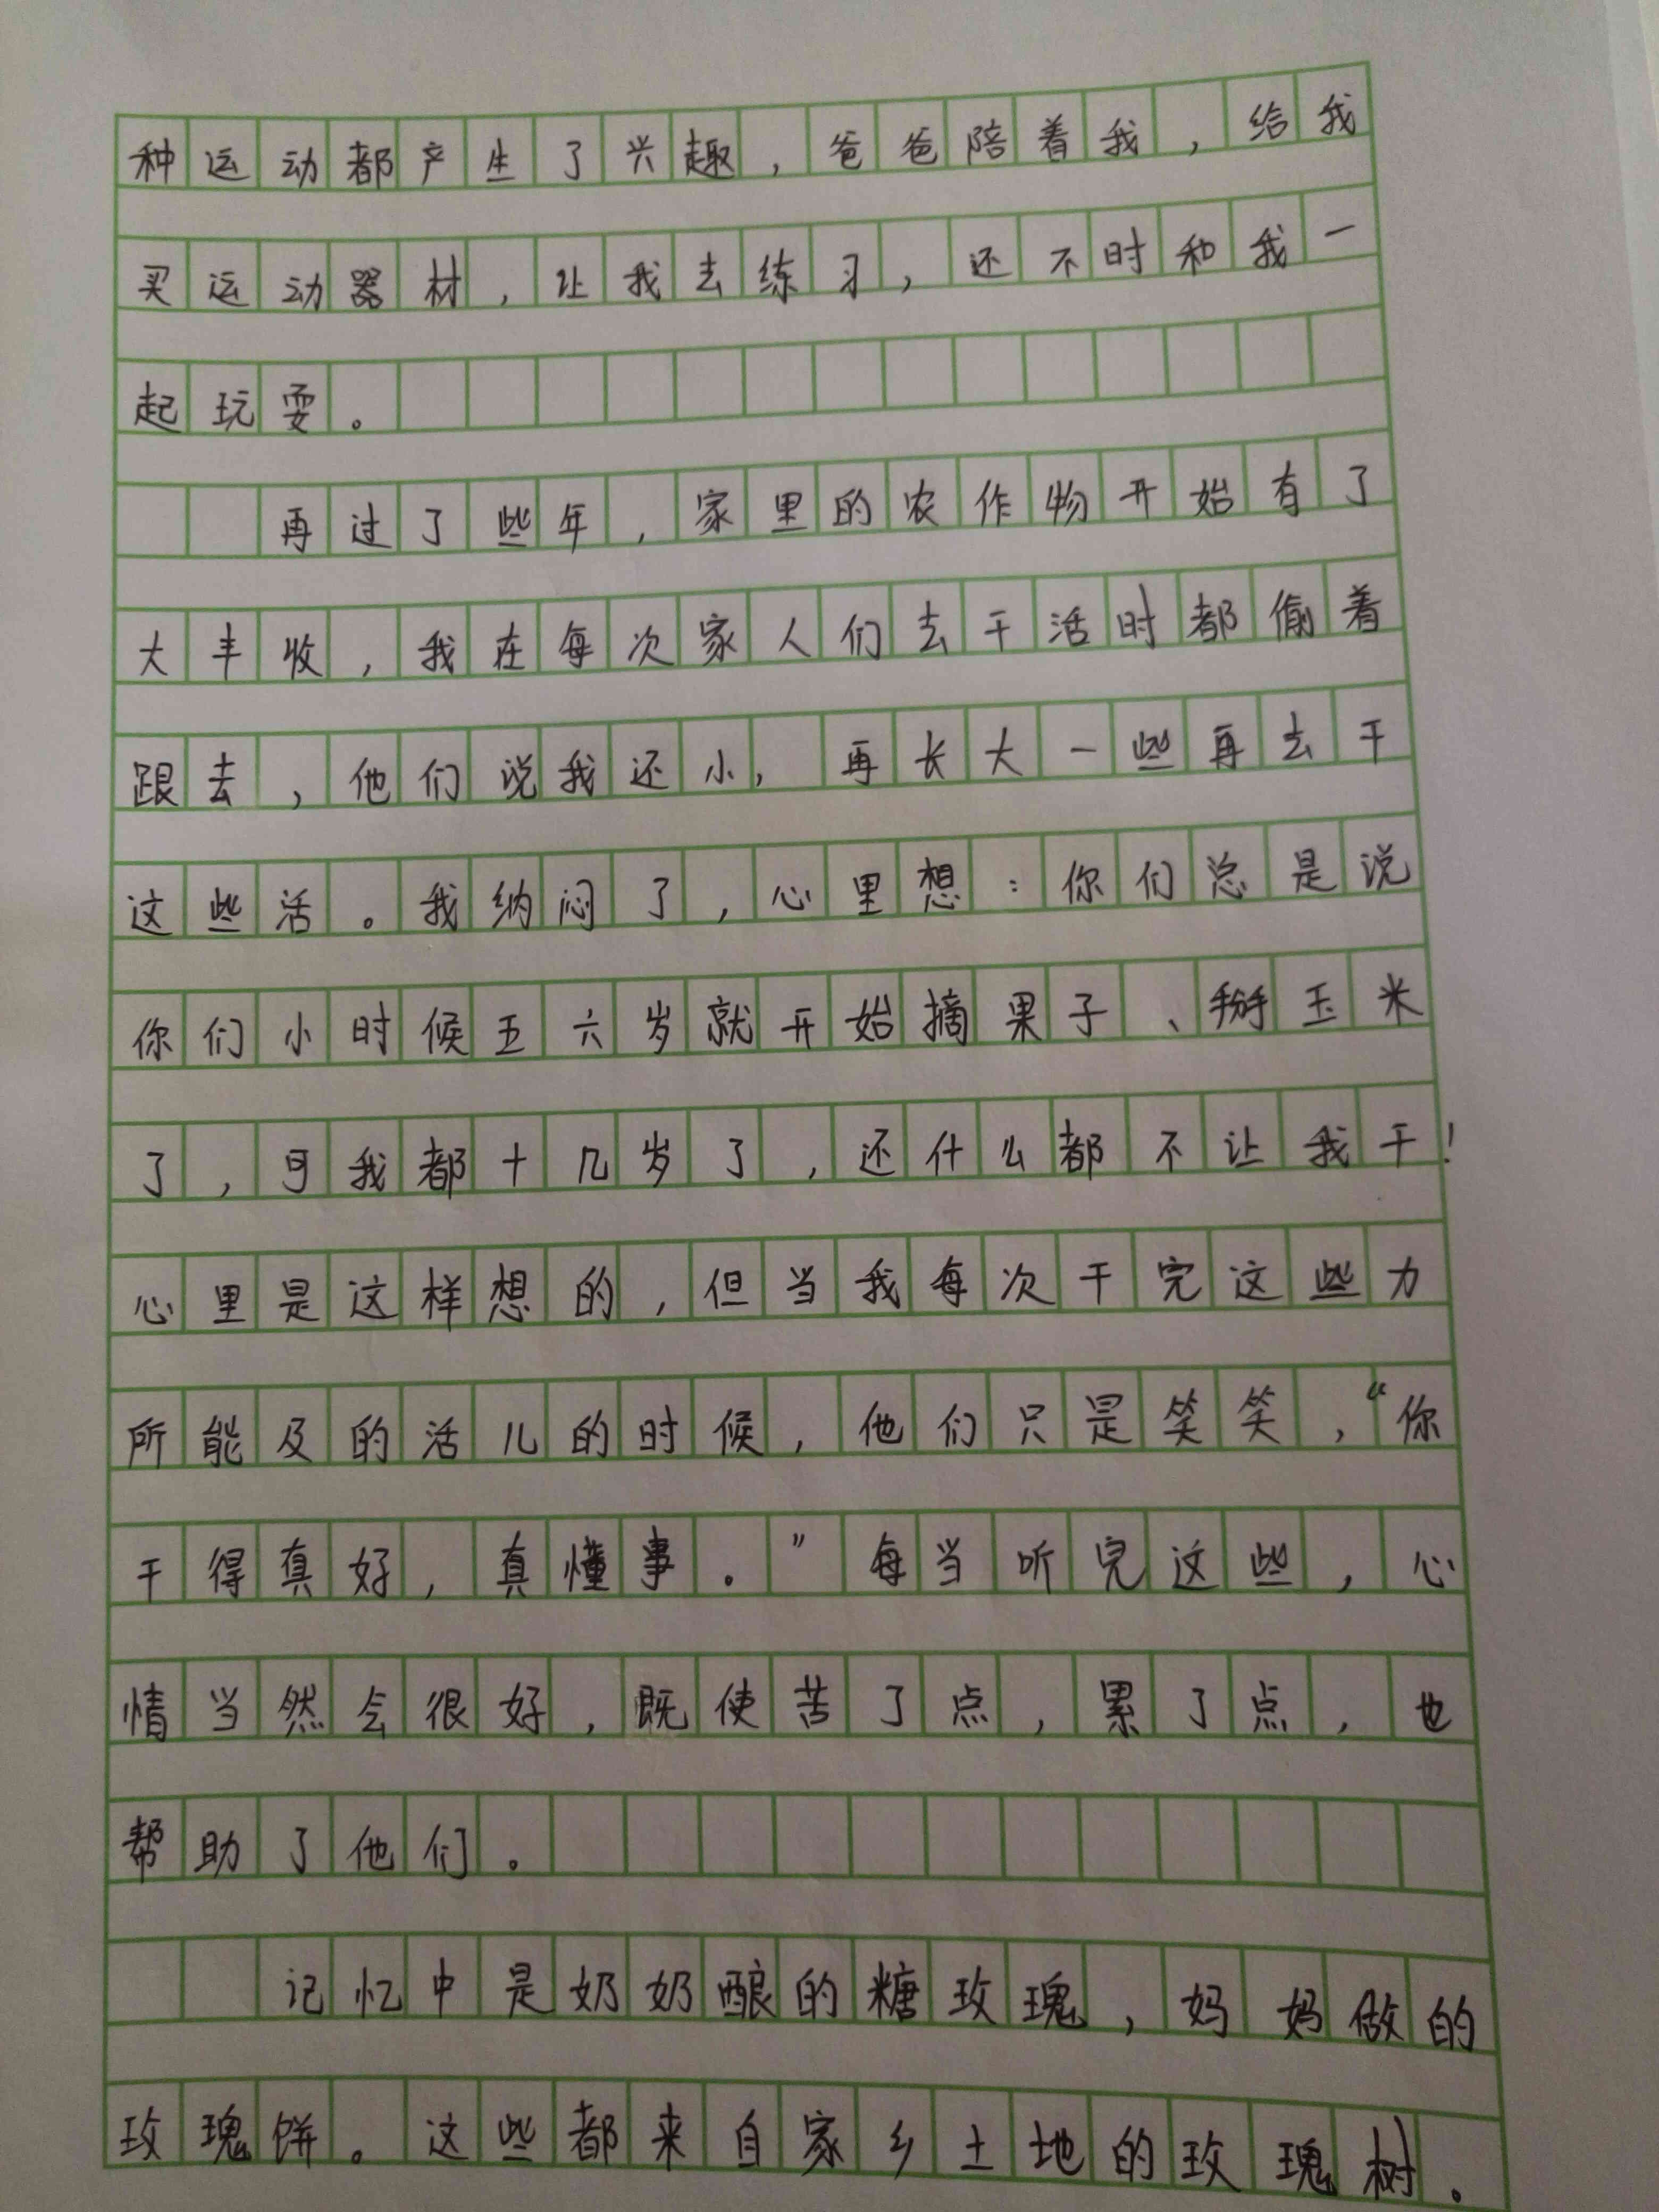 种运动都产生了兴趣，爸爸陪着我，给我
买运动器材，让我去练习，还不时和我一
起玩耍。
再过了些年，家里的农作物开始有了
大丰收，我在每次家人们去干活时都偷着
跟去，他们说我还小，再长大一些再去干
这些活。我纳闷了，心里想：你们总是说
你们小时候五六岁就开始摘果子、掰玉米
了，可我都十几岁了，还什么都不让我干！
心里是这样想的，但当我每次干完这些力
所能及的活儿的时候，他们只是笑笑，“你
干得真好，真懂事。”每当听完这些，心
情当然会很好，既使苦了点，累了点，也
帮助了他们。
记忆中是奶奶酿的糖玫瑰，妈妈做的
玫瑰饼。这些都来自家乡土地的玫瑰树。